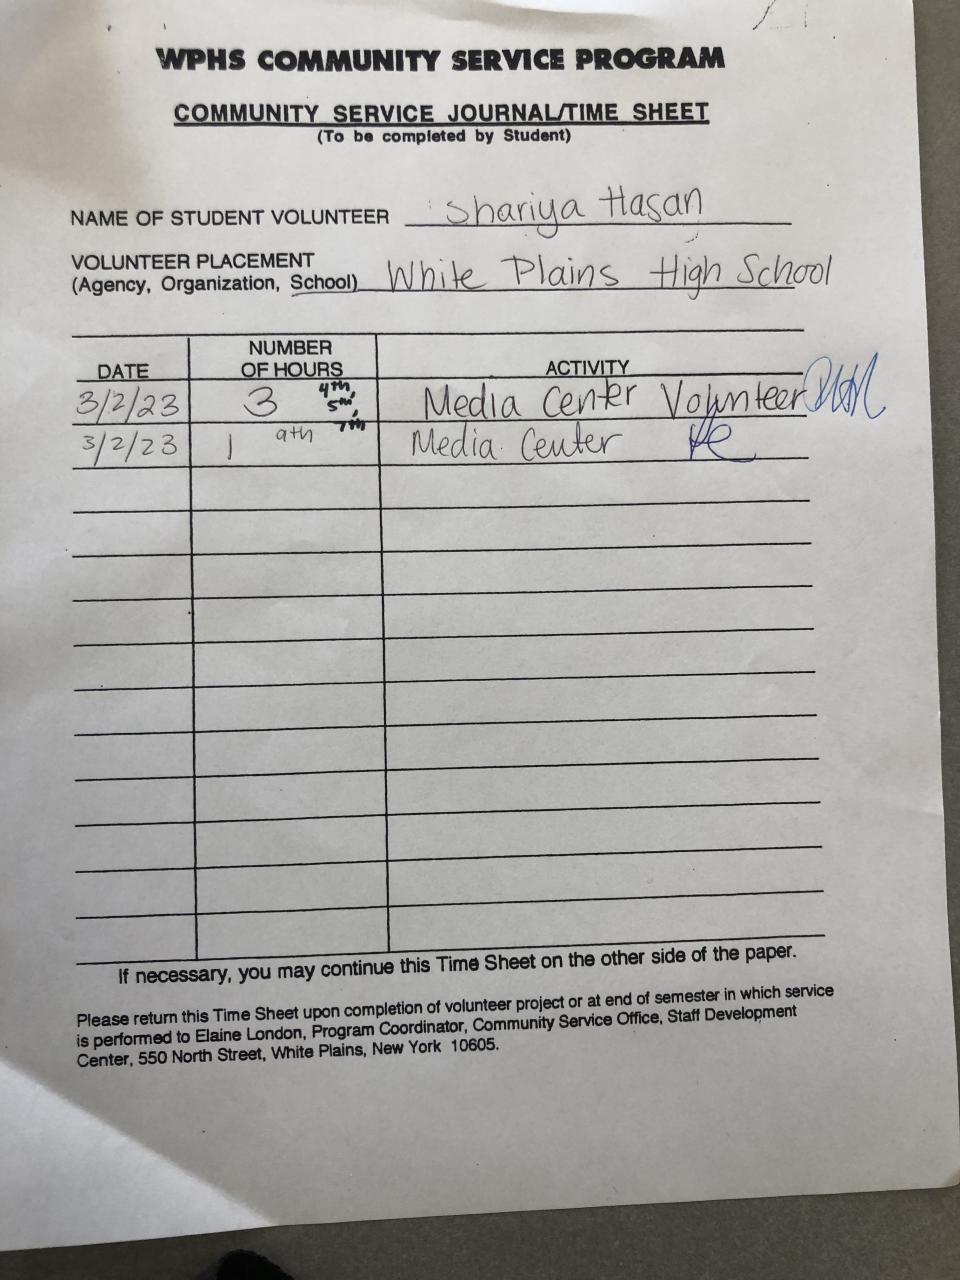 WPHS COMMUNITY SERVICE PROGRAM
COMMUNITY SERVICE JOURNAL/TIME SHEET
(To be completed by Student)
NAME OF STUDENT VOLUNTEER Shariya Hasan
VOLUNTEER PLACEMENT
(Agency, Organization, School) White Plains High School
DATE NUMBER OF HOURS ACTIVITY
3/2/23 3 4th, 5th, 7th Media Center Volunteer
3/2/23 1 9th Media Center
If necessary, you may continue this Time Sheet on the other side of the paper.
Please return this Time Sheet upon completion of volunteer project or at end of semester in which service
is performed to Elaine London, Program Coordinator, Community Service Office, Staff Development
Center, 550 North Street, White Plains, New York 10605.